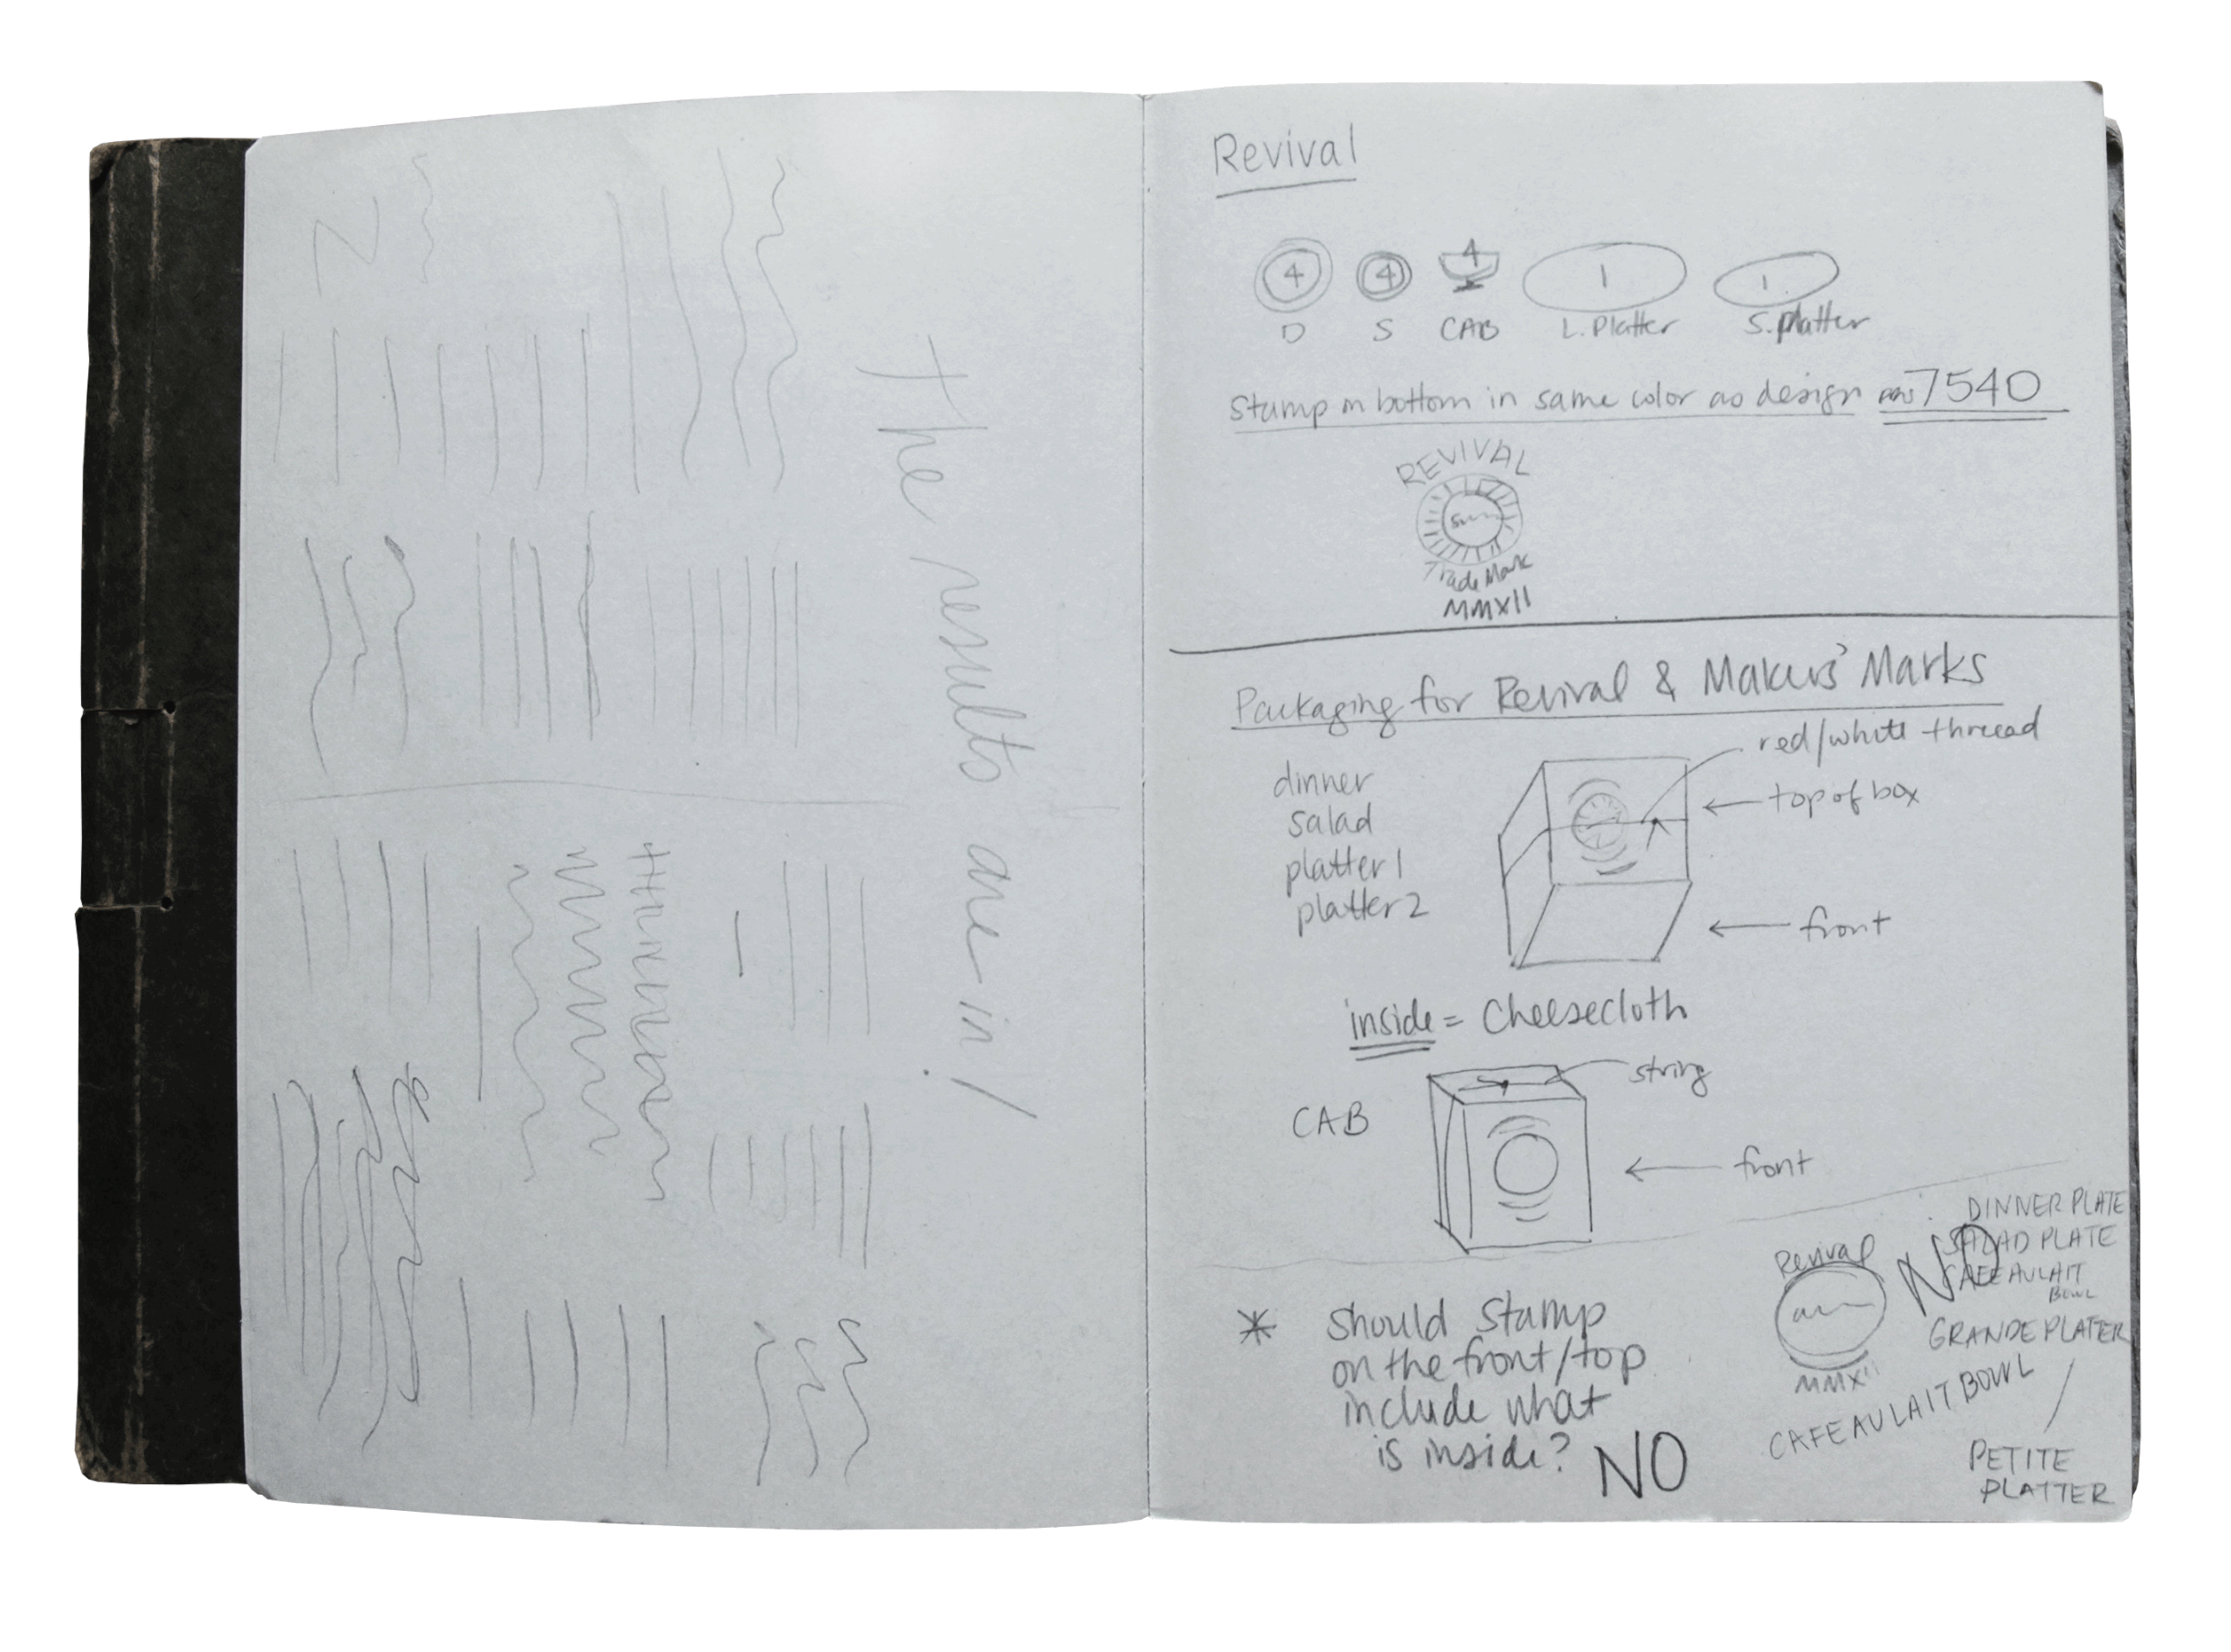 The results are in!
Revival
4 4 4 1 1
D S CAB L. Platter S. platter
Stamp on bottom in same color as design 7540
REVIVAL
Trade Mark
MMXII
Packaging for Revival & Makers' Marks
red/white thread
dinner
top of box
salad
platter 1
platter 2
front
inside = Cheesecloth
string
CAB
front
DINNER PLATE
SALAD PLATE
CAFE AU LAIT
BOWL
NO
GRANDE PLATTER
Revival
MMXII
CAFE AU LAIT BOWL
PETITE
PLATTER
* Should Stamp
on the front/top
include what
is inside? NO